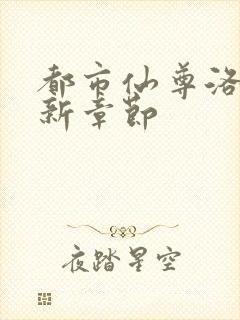 都市仙尊洛
新章节
夜踏星空